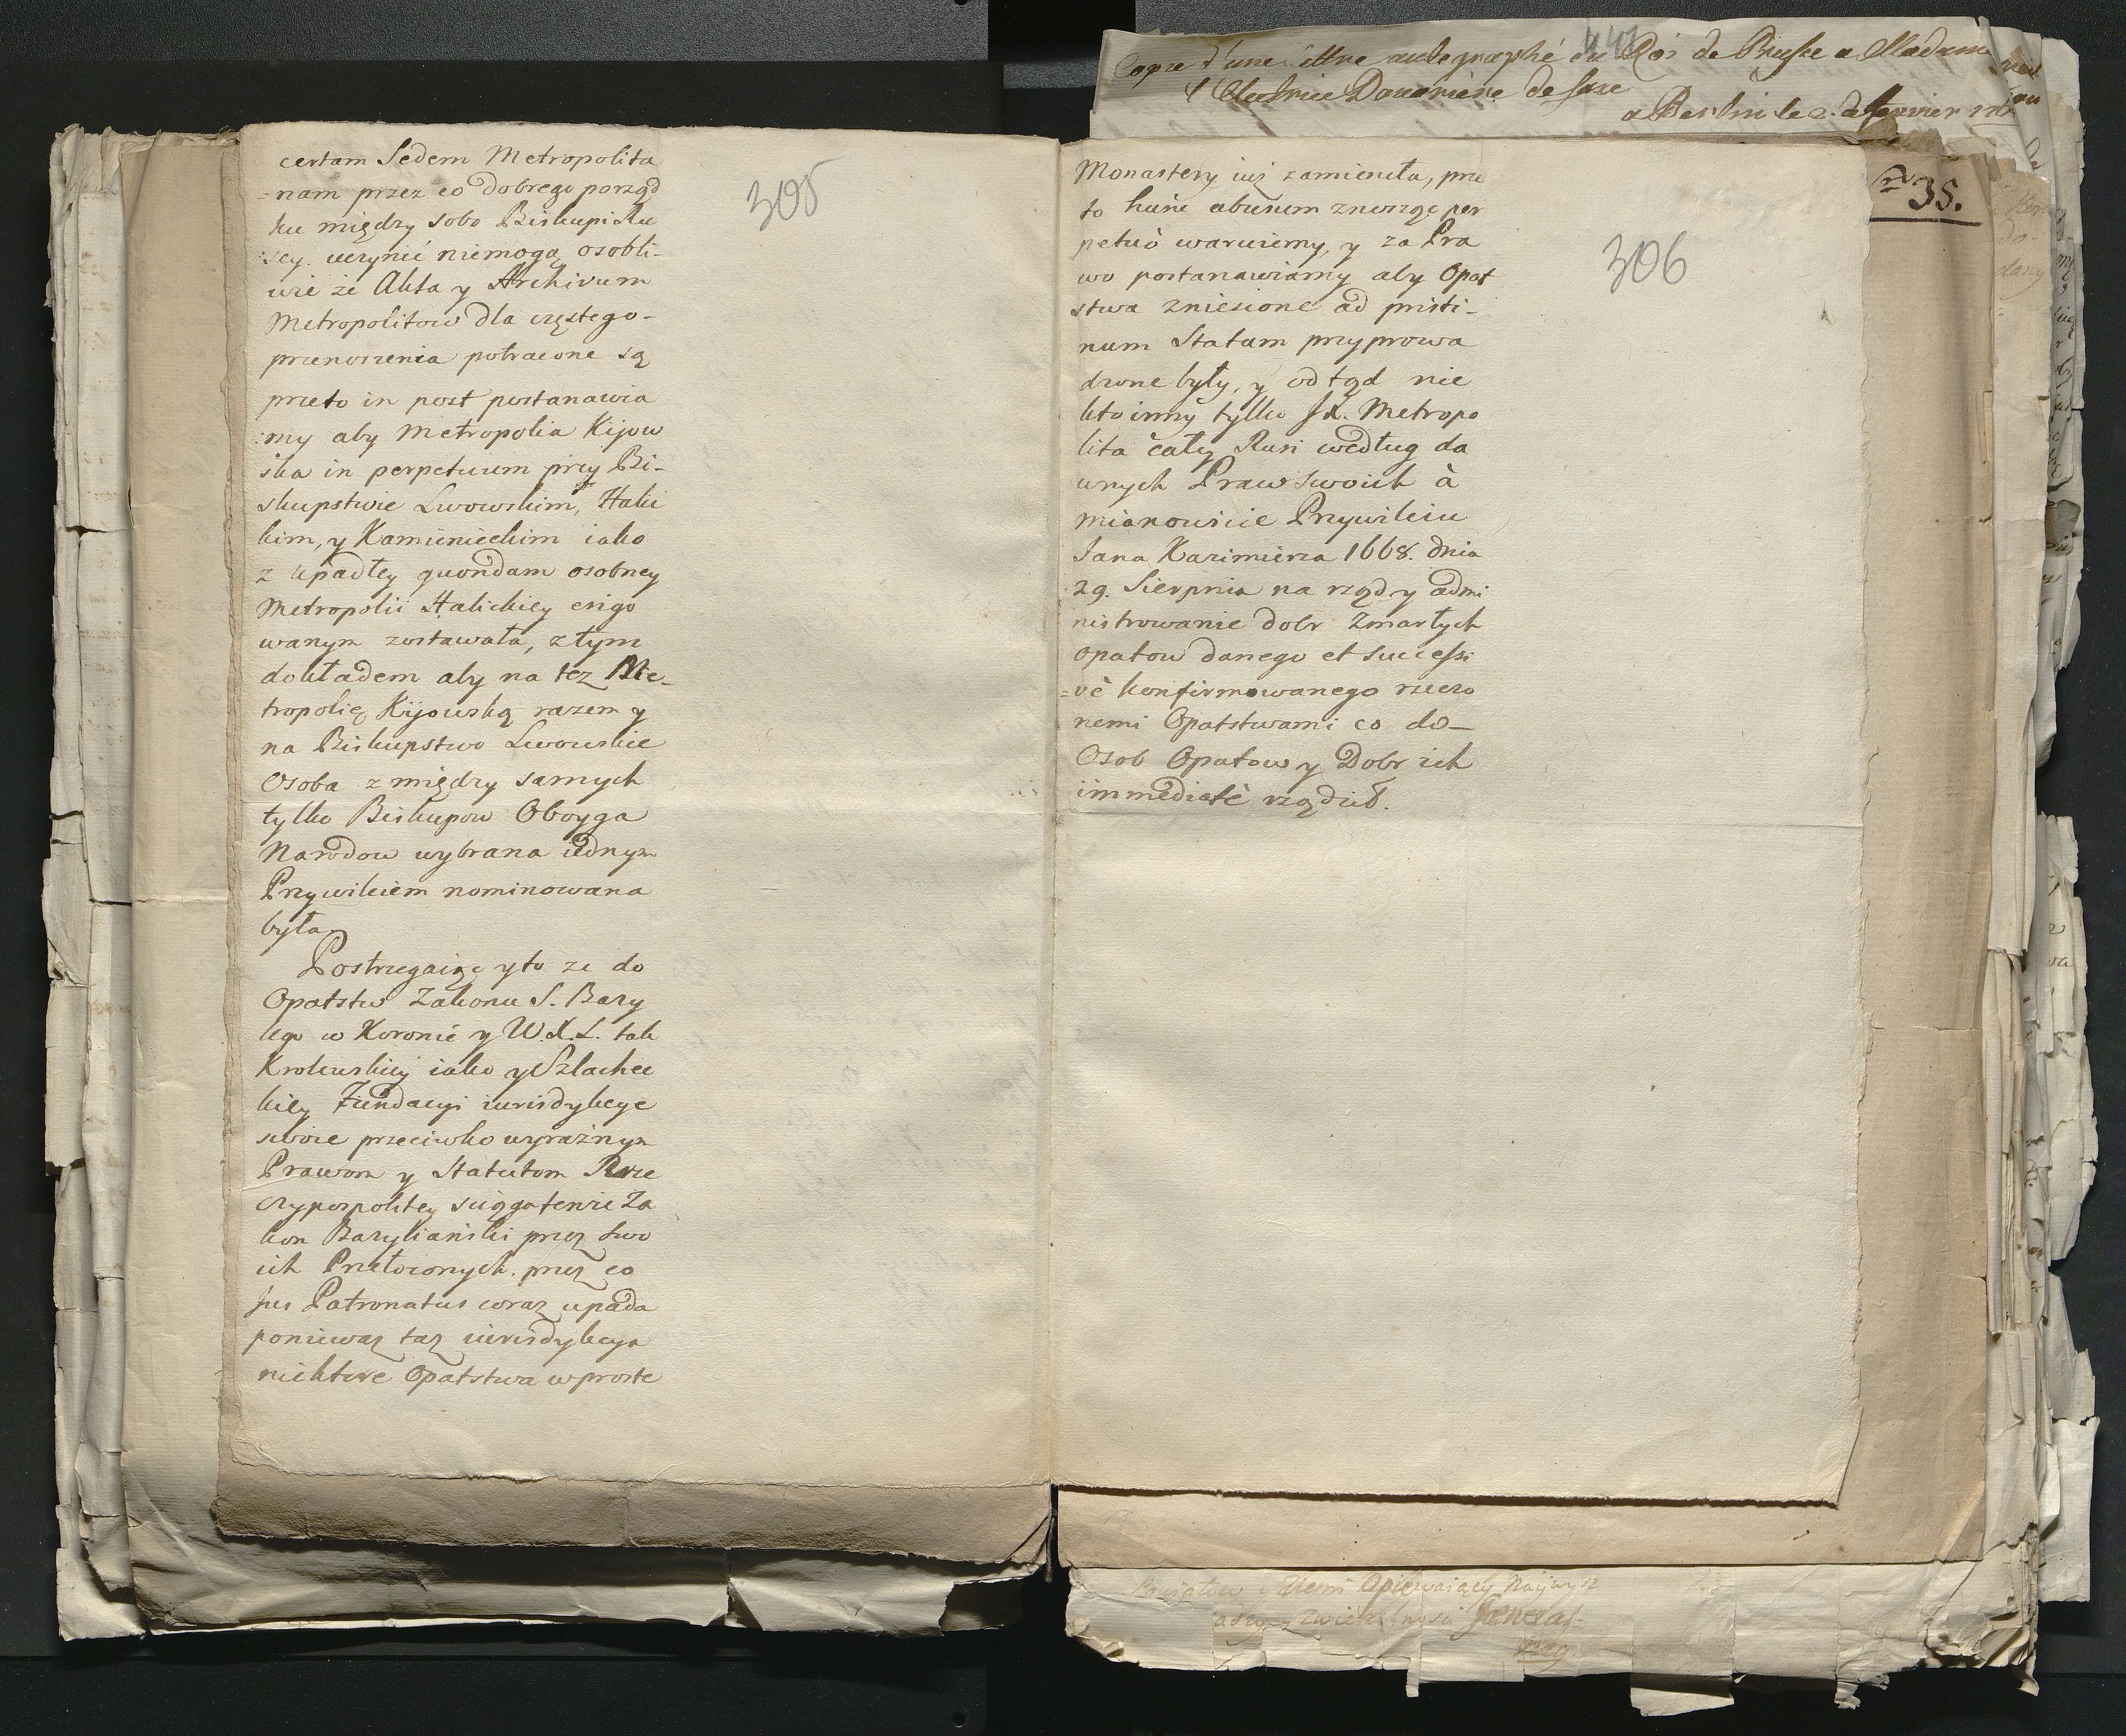 305
certam Sedem Metropolita
=nam przez co dobrego porząd
ku między sobo Biskupi Ru
:scy. uczynić niemogą osobli-
wie że Akta y Archivum
Metropolitow dla częstego-
przenoszenia potracone są
przeto in post postanawia
:my aby Metropolia Kijow
ska in perpetuum przy Bi-
skupstwie Lwowskim, Halic
kim, y Kamienieckim iako
z upadłey quondam osobney
Metropolii Halickiey erigo
wanym zostawała, z tym
dokładem aby na tęz Me-
tropolię Kijowską razem y
na Biskupstwo Lwowskie
Osoba z między samych
tylko Biskupow Oboyga
Narodow wybrana iednym
Przywileiem nominowana
była.
Postrzegaiąc y to ze do
Opatstw Zakonu S. Bazy
lego w Koronie y W.X.L. tak
Krolewskiey iako y Szlachec
kiey Fundacyi iurisdykcye
swoie przeciwko wyraźnym
Prawom y Statutom Rze
czypospolitey sciąga tenże Za
kon Bazyliański przez Swo
ich Przełozonych. przez co
jus Patronatus coraz upada
poniewaz taz iurisdykcya
niektore Opatstwa w proste
306
Monastery iuż zamieniła, prze
to huńc abusum znosząc per
petuò waruiemy, y za Pra
wo postanawiamy aby Opat
stwa zniesione ad pristi-
num Statum przyprowa
dzone były, y odtąd nie
kto inny tylko JX. Metropo
lita całey Rusi według da
wnych Praw Swoich à
mianowicie Przywileiu
Jana Kazimierza 1668. dnia
29. Sierpnia na rząd y admi
nistrowanie dobr Zmarłych
Opatow danego et successi
=vè konfirmowanego rzeczo
nemi Opatstwami co do-
Osob Opatow y Dobr ich
immediatè rządził.
Copie d'une lettre autographé du Roi de Prusse a Madame
l'Electrice Douariere de Saxe
a Berlin le 2. de Janvier
35.
Opiewaiący Naywyz
General-